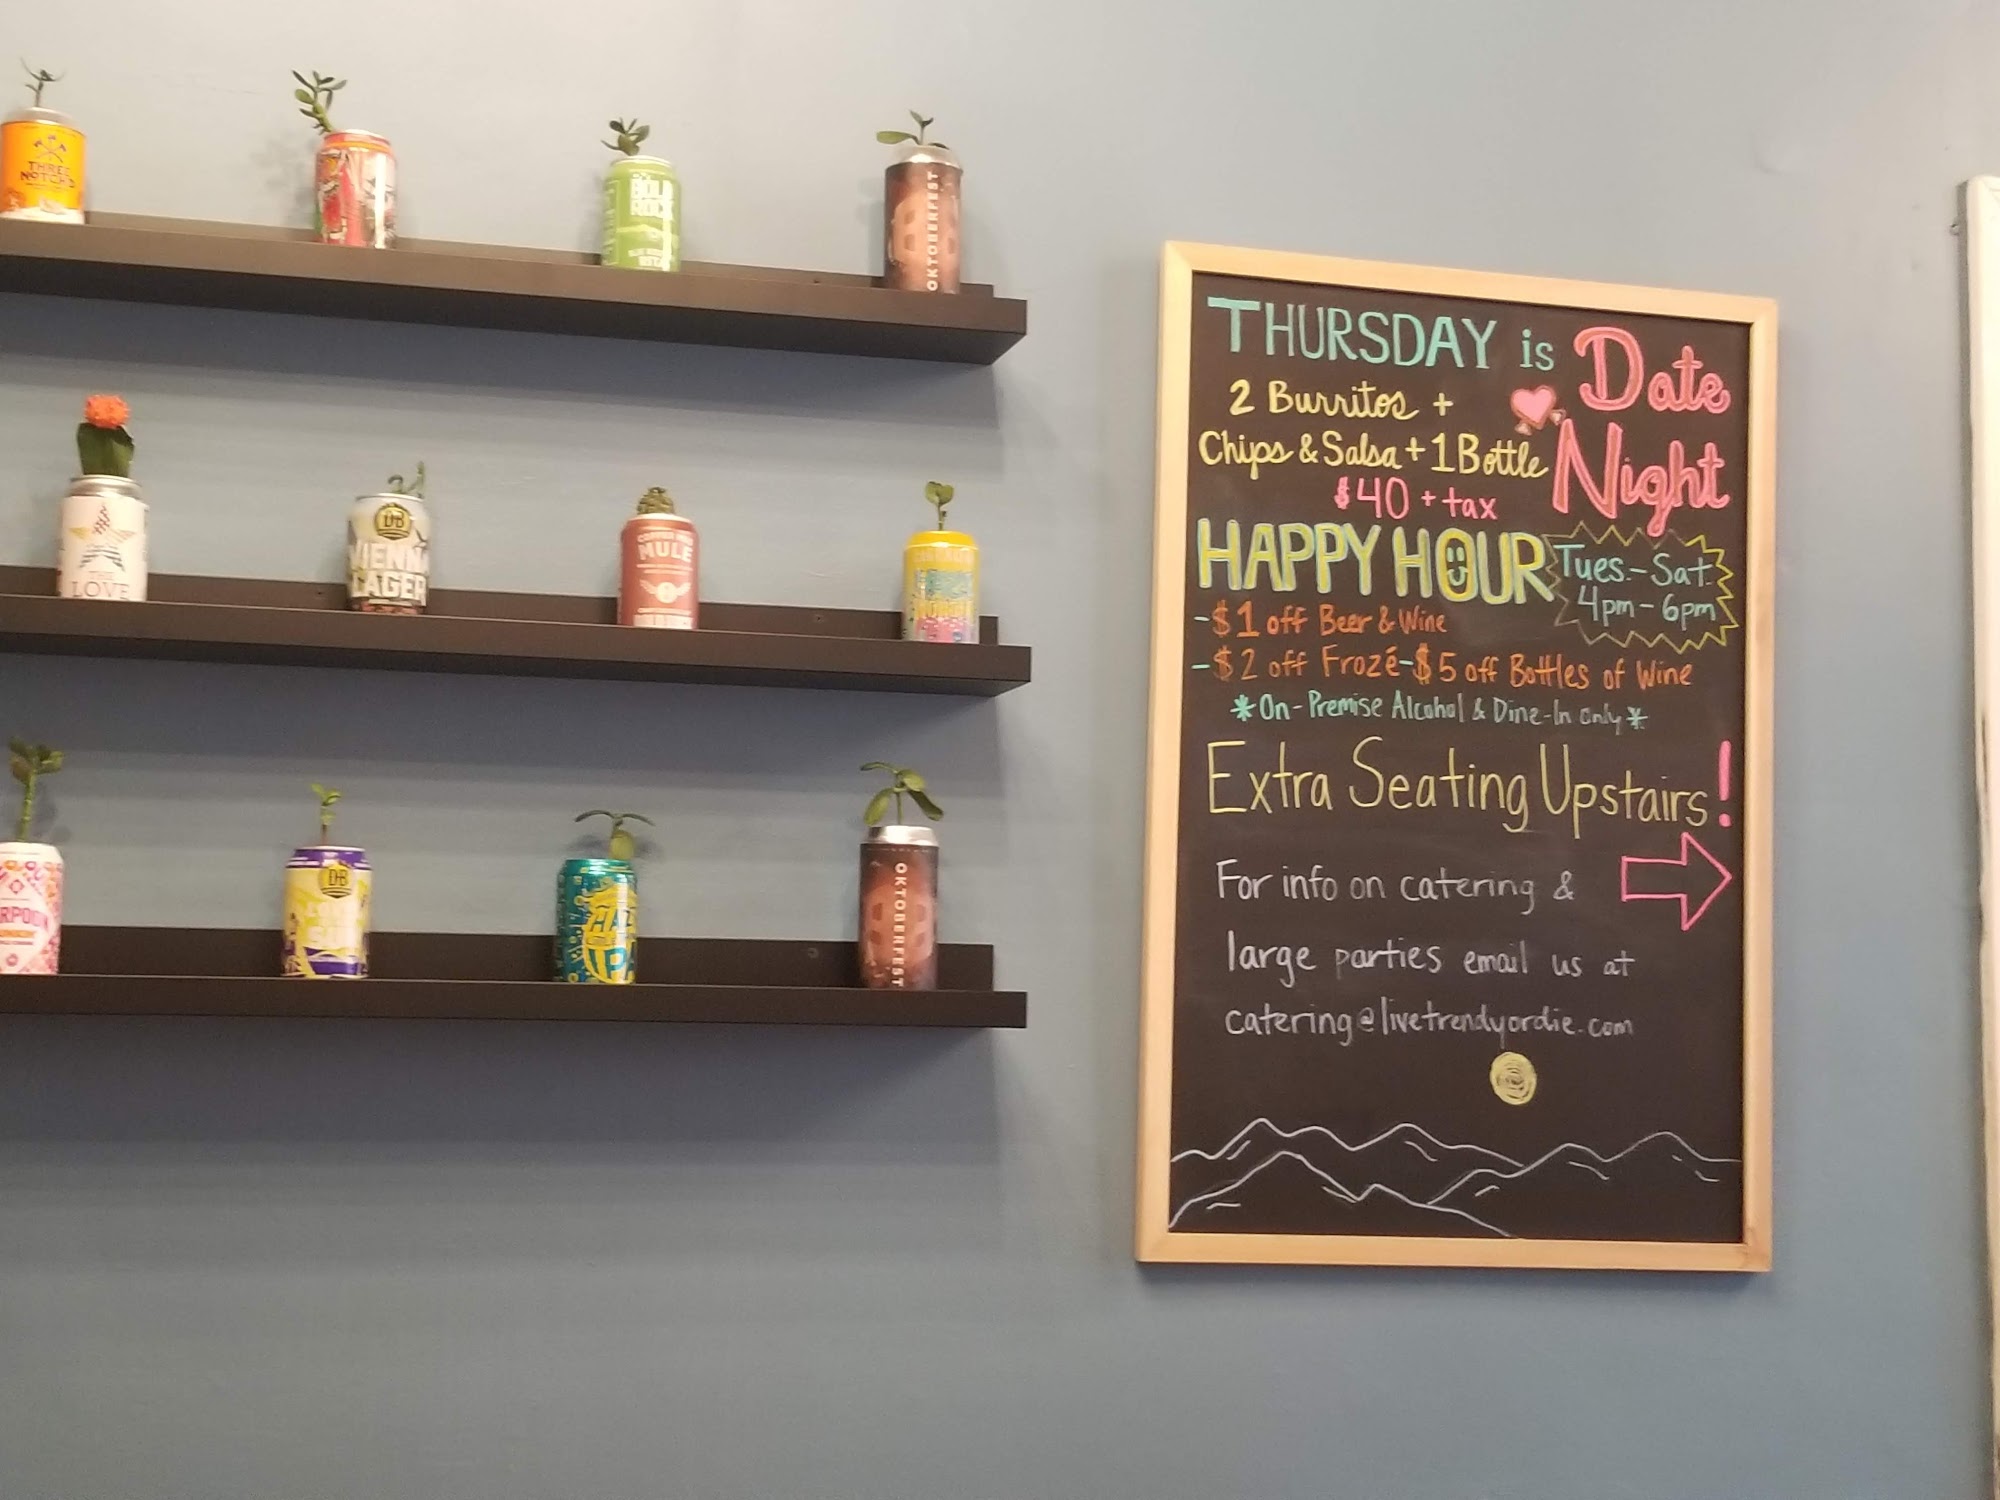 THREE
NOTCH'D
BOLD
ROCK
OKTOBERFEST
THURSDAY is Date
2 Burritos +
Chips & Salsa + 1 Bottle Night
$40 + tax
HAPPY HOUR Tues.-Sat.
4pm-6pm
-$1 off Beer & Wine
-$2 off Frozé-$5 off Bottles of Wine
*On-Premise Alcohol & Dine-In only*
Extra Seating Upstairs!
For info on catering &
large parties email us at
catering@livetrendyordie.com
LOVE
DB
VIENNA
LAGER
MULE
DB
OKTOBERFEST